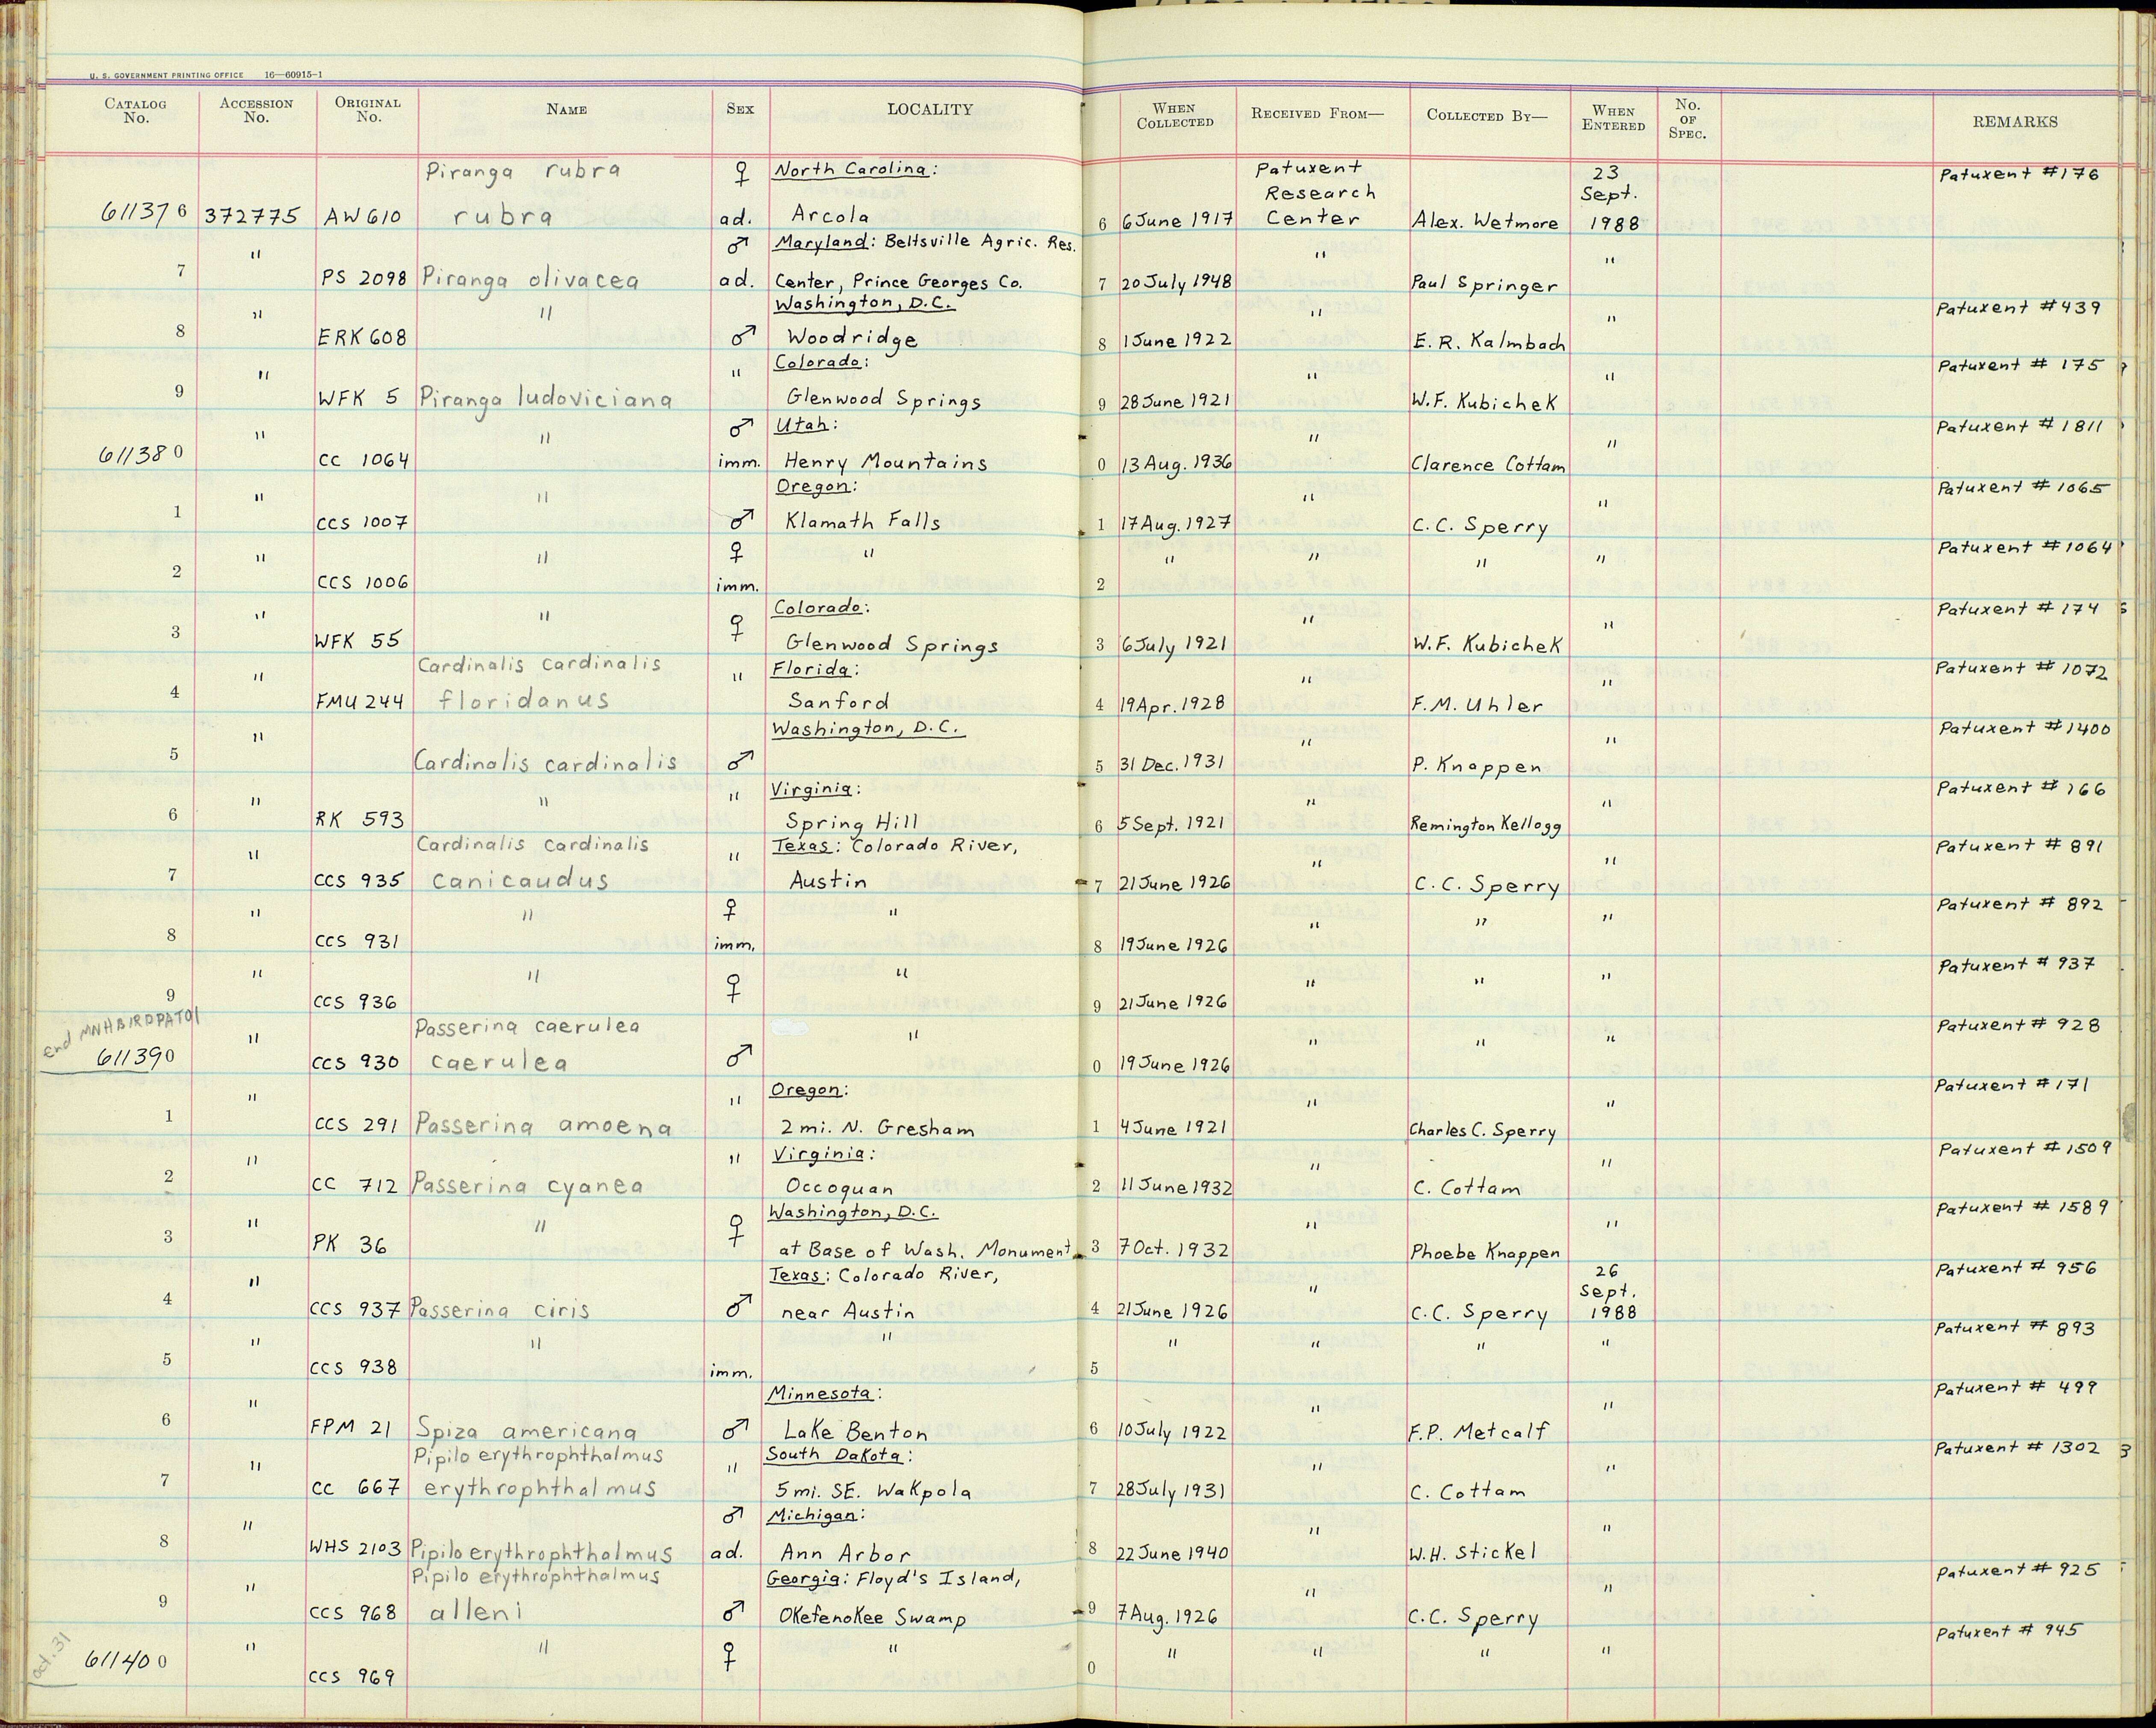 U. S. GOVERNMENT PRINTING OFFICE 16—60915-1
CATALOG No. ACCESSION No. ORIGINAL No. NAME SEX LOCALITY WHEN COLLECTED RECEIVED FROM— COLLECTED BY— WHEN ENTERED No. OF SPEC. REMARKS
Piranga rubra ♀ North Carolina: Patuxent 23 Patuxent #176
Research Sept.
611376 372775 AW 610 rubra ad. Arcola 6 6 June 1917 Center Alex. Wetmore 1988
" ♂ Maryland: Beltsville Agric. Res. " "
7 PS 2098 Piranga olivacea ad. Center, Prince Georges Co. 7 20 July 1948 Paul Springer
" " Washington, D.C. " " Patuxent #439
8 ERK 608 ♂ Woodridge 8 1 June 1922 E. R. Kalmbach
" " Colorado: " " Patuxent # 175
9 WFK 5 Piranga ludoviciana Glenwood Springs 9 28 June 1921 W.F. Kubichek
" " ♂ Utah: " " Patuxent # 1811
611380 CC 1064 imm. Henry Mountains 0 13 Aug. 1936 Clarence Cottam
" " Oregon: " " Patuxent # 1065
1 CCS 1007 ♂ Klamath Falls 1 17 Aug. 1927 C.C. Sperry
" " ♀ " " " " " Patuxent #1064
2 CCS 1006 imm. 2
" " ♀ Colorado: " " Patuxent # 174
3 WFK 55 Glenwood Springs 3 6 July 1921 W.F. Kubichek
" Cardinalis cardinalis " Florida: " " Patuxent # 1072
4 FMU 244 floridanus Sanford 4 19 Apr. 1928 F.M. Uhler
" Washington, D.C. " " Patuxent #1400
5 Cardinalis cardinalis ♂ 5 31 Dec. 1931 P. Knappen
" " " Virginia: " " Patuxent # 166
6 RK 593 Spring Hill 6 5 Sept. 1921 Remington Kellogg
" Cardinalis cardinalis " Texas: Colorado River, " " Patuxent # 891
7 CCS 935 canicaudus Austin 7 21 June 1926 C.C. Sperry
" " ♀ " " " " Patuxent # 892
8 CCS 931 imm. 8 19 June 1926
" " ♀ " " " " Patuxent # 937
9 CCS 936 9 21 June 1926
end MNHBIRDPAT01
" Passerina caerulea " " " " Patuxent # 928
611390 CCS 930 caerulea ♂ 0 19 June 1926
" " Oregon: " " Patuxent # 171
1 CCS 291 Passerina amoena 2 mi. N. Gresham 1 4 June 1921 Charles C. Sperry
" " Virginia: " " Patuxent #1509
2 CC 712 Passerina cyanea Occoquan 2 11 June 1932 C. Cottam
" " ♀ Washington, D.C. " " Patuxent # 1589
3 PK 36 at Base of Wash. Monument 3 7 Oct. 1932 Phoebe Knappen
" Texas: Colorado River, " 26 Patuxent # 956
Sept.
4 CCS 937 Passerina ciris ♂ near Austin 4 21 June 1926 C.C. Sperry 1988
" " " " " " " Patuxent # 893
5 CCS 938 imm. 5
" Minnesota: " " Patuxent # 499
6 FPM 21 Spiza americana ♂ Lake Benton 6 10 July 1922 F.P. Metcalf
" Pipilo erythrophthalmus " South Dakota: " " Patuxent # 1302
7 CC 667 erythrophthalmus 5 mi. SE. Wakpola 7 28 July 1931 C. Cottam
" ♂ Michigan: " "
8 WHS 2103 Pipilo erythrophthalmus ad. Ann Arbor 8 22 June 1940 W.H. Stickel
" Pipilo erythrophthalmus Georgia: Floyd's Island, " " Patuxent # 925
9 CCS 968 alleni ♂ Okefenokee Swamp 9 7 Aug. 1926 C.C. Sperry
Oct. 31
" " ♀ " " " " " Patuxent # 945
611400 CCS 969 0